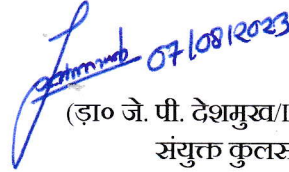 07/08/2023
(ड़ा० जे. पी. देशमुख/
संयुक्त कुलस